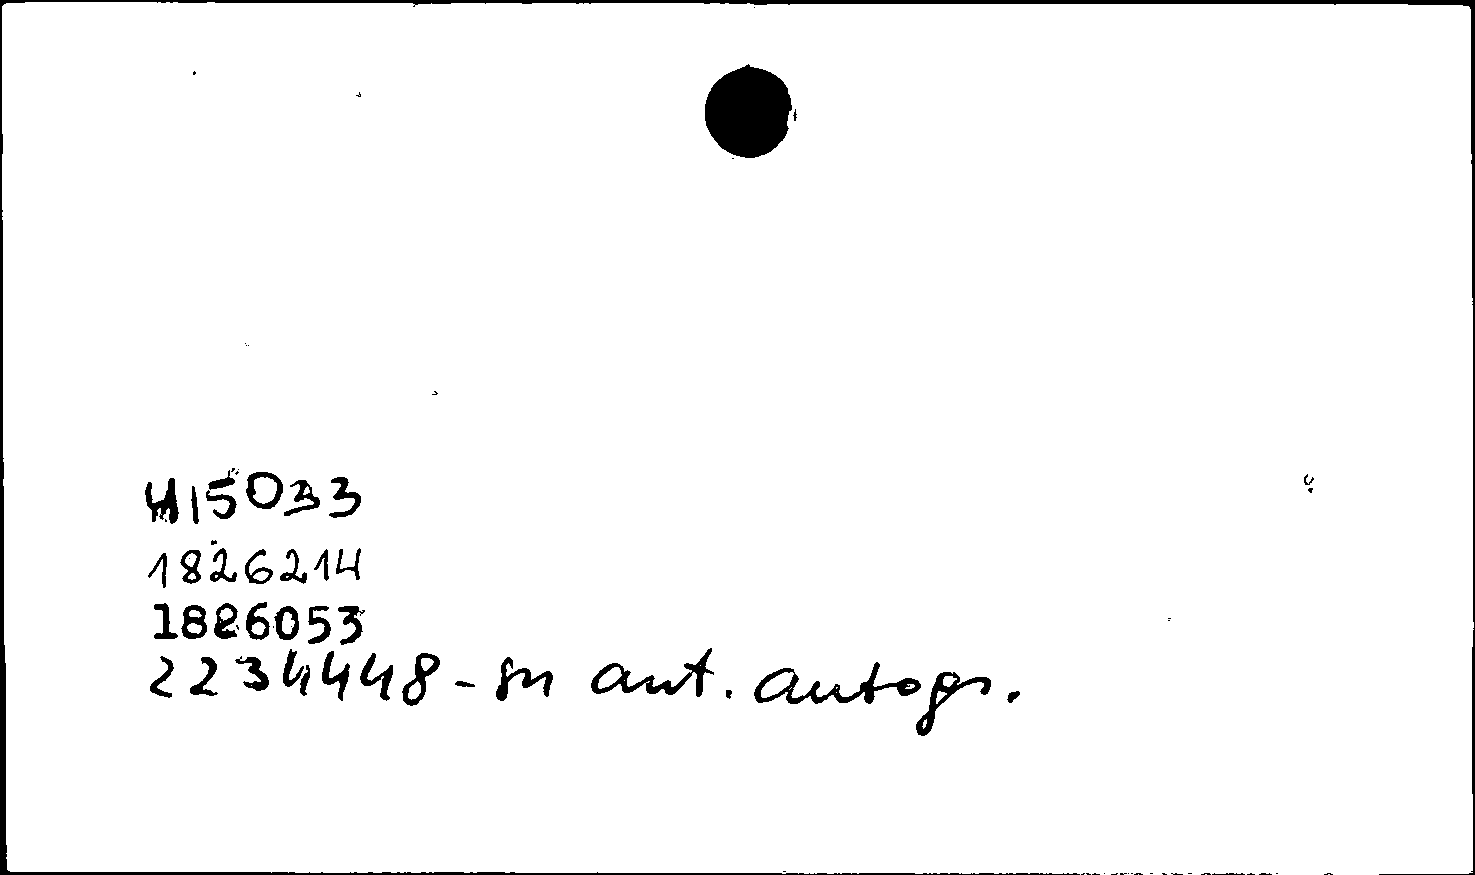 415033
1826214
1826053
2234448 - ant. autogr.